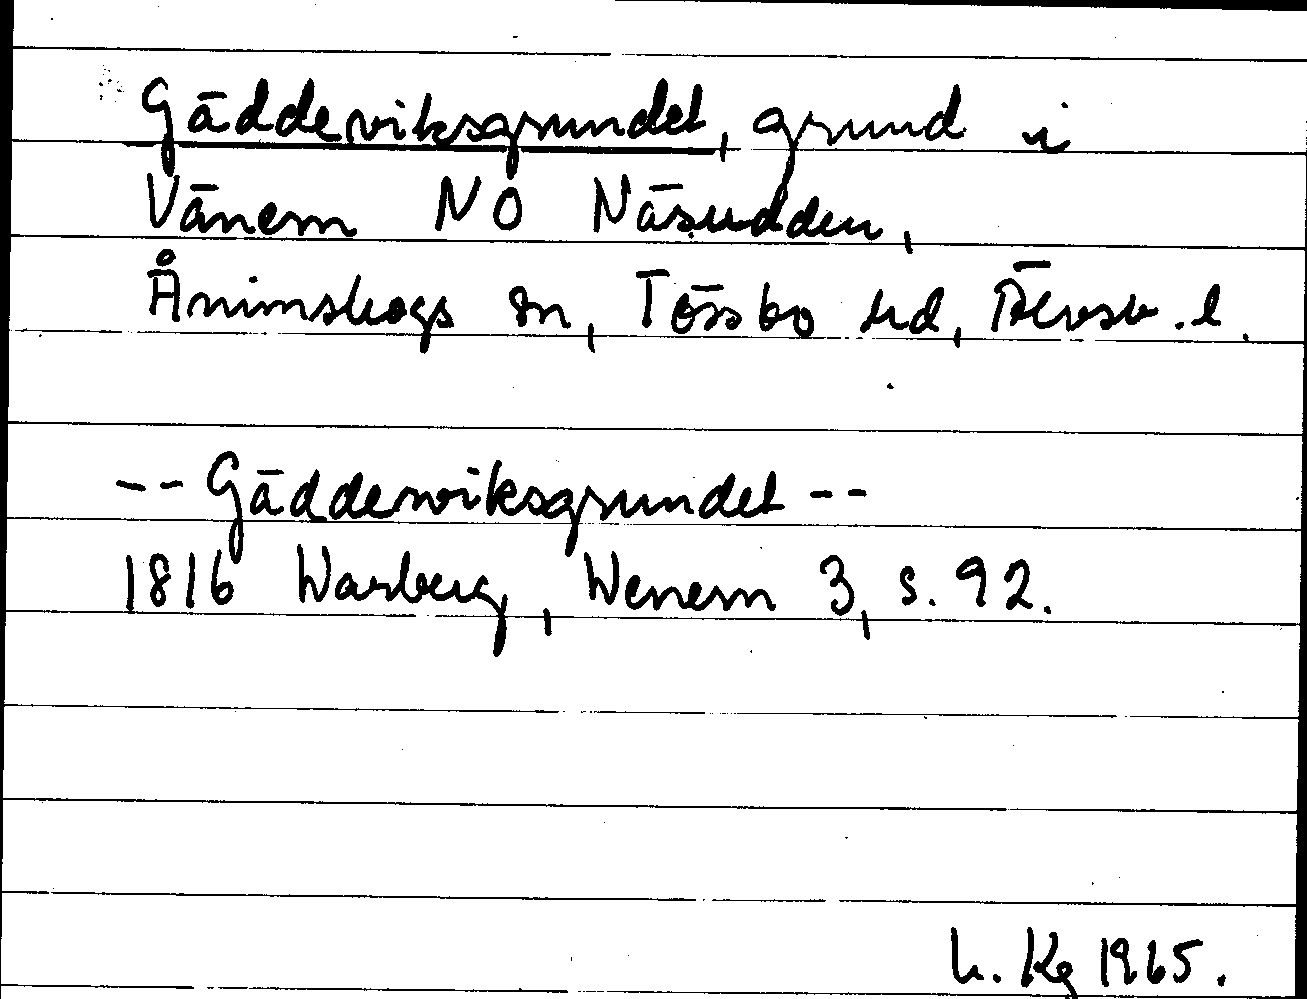 Gäddeviksgrundet, grund i
Vänern NO Näsudden,
Ånimskogs sn, Tössbo hd, Älvsb. l.
-- Gädderviksgrundet --
1816 Warberg, Wenern 3, s. 92.
L. Kg 1965.